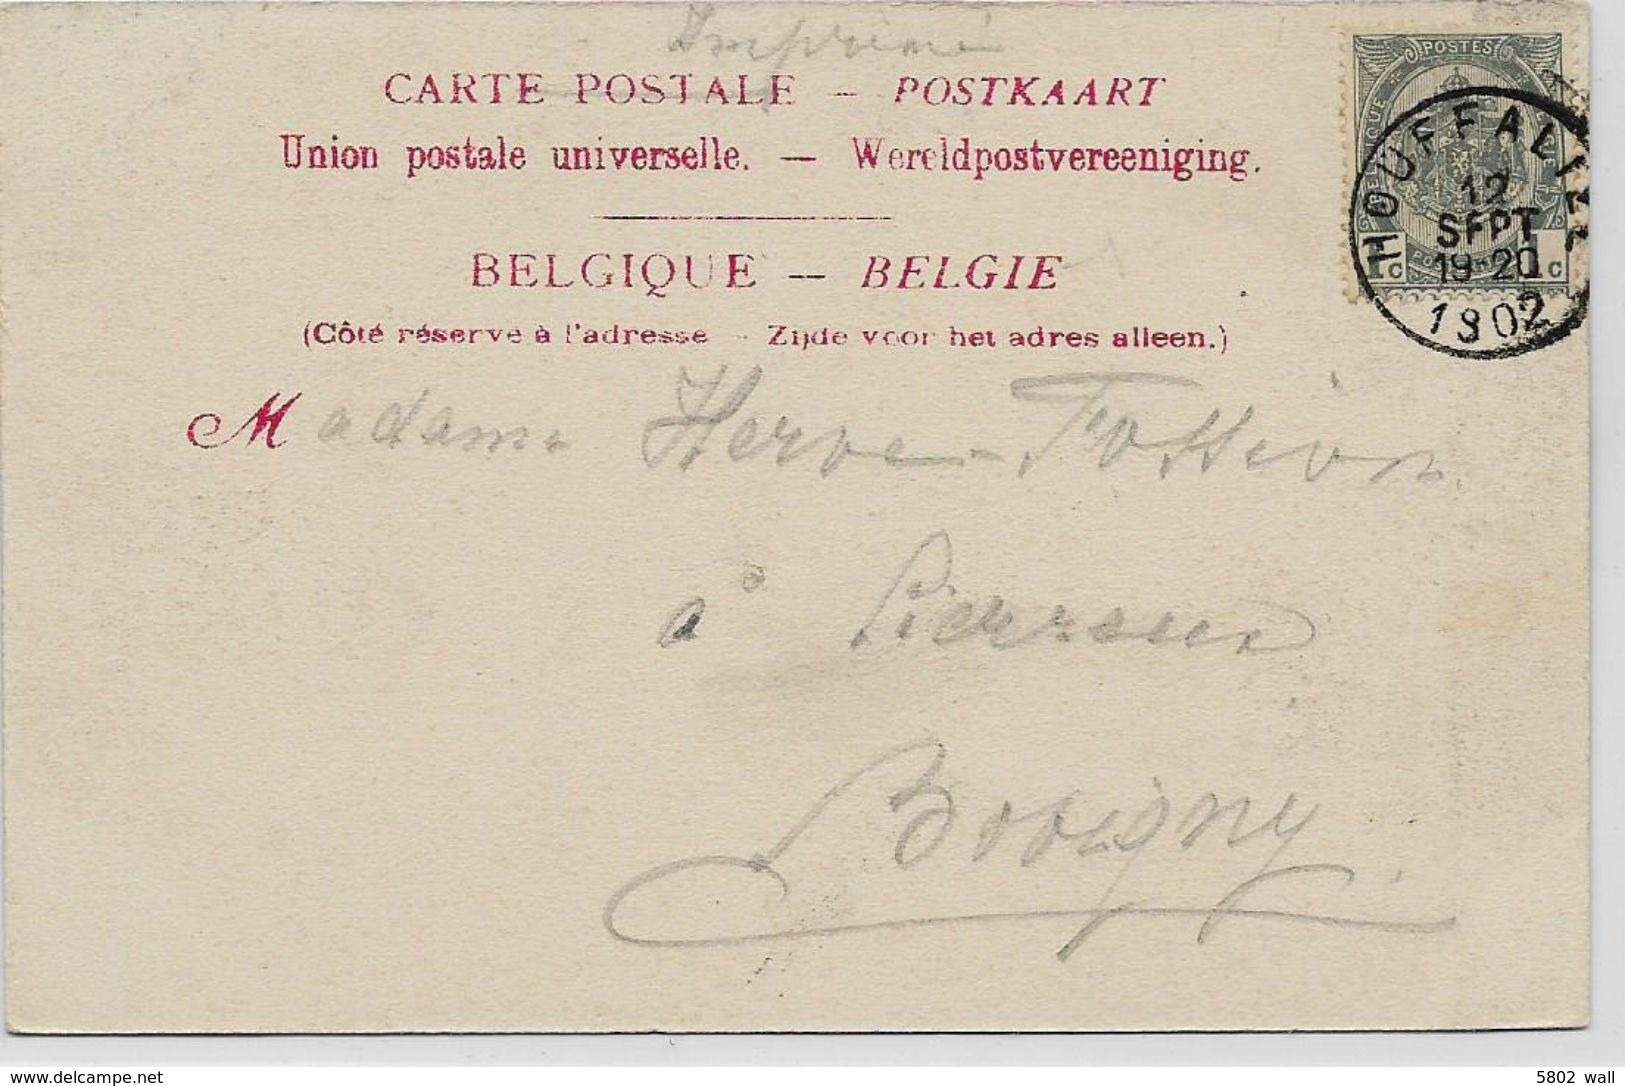 Imprimé
CARTE POSTALE – POSTKAART
Union postale universelle. — Wereldpostvereeniging.
BELGIQUE -- BELGIE
(Côté réservé à l'adresse - Zijde voor het adres alleen.)
POSTES
1 c 1 c
HOUFFALIZE
12
SEPT
19-20
1902
Madame Herve-
à
Bovigny
www.delcampe.net
5802 wall